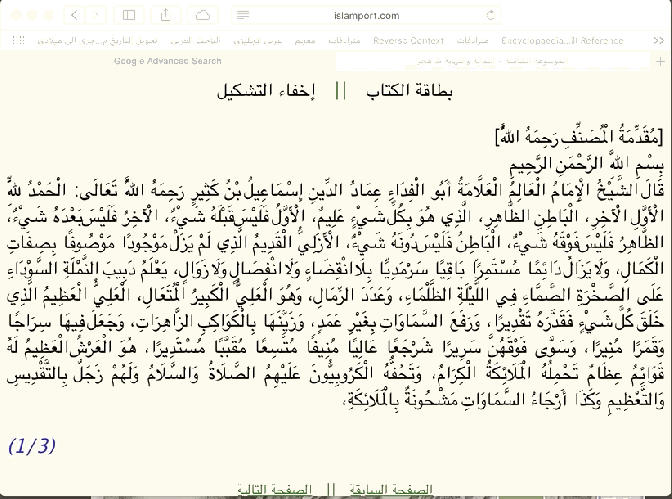 islamport.com
Reverse Context Encyclopaedia
Google Advanced Search
بطاقة الكتاب || إخفاء التشكيل
[مُقَدِّمَةُ الْمُصَنِّفِ رَحِمَهُ اللهُ]
بِسْمِ اللهِ الرَّحْمَنِ الرَّحِيمِ
قَالَ الشَّيْخُ الْإِمَامُ الْعَالِمُ الْعَلَّامَةُ أَبُو الْفِدَاءِ عِمَادُ الدِّينِ إِسْمَاعِيلُ بْنُ كَثِيرٍ رَحِمَهُ اللهُ تَعَالَى: الْحَمْدُ لِلَّهِ
الْأَوَّلِ الْآخِرِ، الْبَاطِنِ الظَّاهِرِ، الَّذِي هُوَ بِكُلِّ شَيْءٍ عَلِيمٌ، الْأَوَّلُ فَلَيْسَ قَبْلَهُ شَيْءٌ، الْآخِرُ فَلَيْسَ بَعْدَهُ شَيْءٌ،
الظَّاهِرُ فَلَيْسَ فَوْقَهُ شَيْءٌ، الْبَاطِنُ فَلَيْسَ دُونَهُ شَيْءٌ، الْأَزَلِيُّ الْقَدِيمُ الَّذِي لَمْ يَزَلْ مَوْجُودًا مَوْصُوفًا بِصِفَاتِ
الْكَمَالِ، وَلَا يَزَالُ دَائِمًا مُسْتَمِرًّا بَاقِيًا سَرْمَدِيًّا بِلَا انْقِضَاءٍ وَلَا انْفِصَالٍ وَلَا زَوَالٍ، يَعْلَمُ دَبِيبَ النَّمْلَةِ السَّوْدَاءِ
عَلَى الصَّخْرَةِ الصَّمَّاءِ فِي اللَّيْلَةِ الظَّلْمَاءِ، وَعَدَدَ الرِّمَالِ، وَهُوَ الْعَلِيُّ الْكَبِيرُ الْمُتَعَالِ، الْعَلِيُّ الْعَظِيمُ الَّذِي
خَلَقَ كُلَّ شَيْءٍ فَقَدَّرَهُ تَقْدِيرًا، وَرَفَعَ السَّمَاوَاتِ بِغَيْرِ عَمَدٍ، وَزَيَّنَهَا بِالْكَوَاكِبِ الزَّاهِرَاتِ، وَجَعَلَ فِيهَا سِرَاجًا
وَقَمَرًا مُنِيرًا، وَسَوَّى فَوْقَهُنَّ سَرِيرًا شَرْجَعًا عَالِيًا مُنِيفًا مُتَّسِعًا مُقَبَّبًا مُسْتَدِيرًا، هُوَ الْعَرْشُ الْعَظِيمُ لَهُ
قَوَائِمُ عِظَامٌ تَحْمِلُهُ الْمَلَائِكَةُ الْكِرَامُ، وَتَحُفُّهُ الْكَرُوبِيُّونَ عَلَيْهِمُ الصَّلَاةُ وَالسَّلَامُ وَلَهُمْ زَجَلٌ بِالتَّقْدِيسِ
وَالتَّعْظِيمِ وَكَذَا أَرْجَاءُ السَّمَاوَاتِ مَشْحُونَةٌ بِالْمَلَائِكَةِ،
(1/3)
الصفحة السابقة || الصفحة التالية